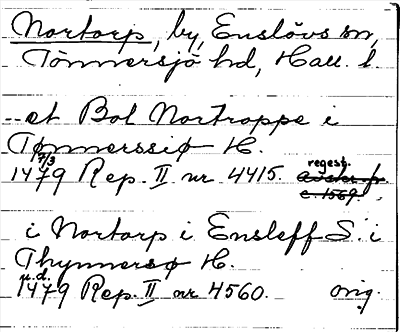 Nortorp, by, Enslövs sn,
Tönnersjö hd, Hall. l.
-- et Bol Nortroppe i
Tømmerssiø H.
7/3
1479 Rep. II nr 4415. regest.
avskr. fr.
c. 1569.
i Nortorp i Ensleff S. i
Thynnersø H.
u.d.
1479 Rep. II nr 4560. orig.